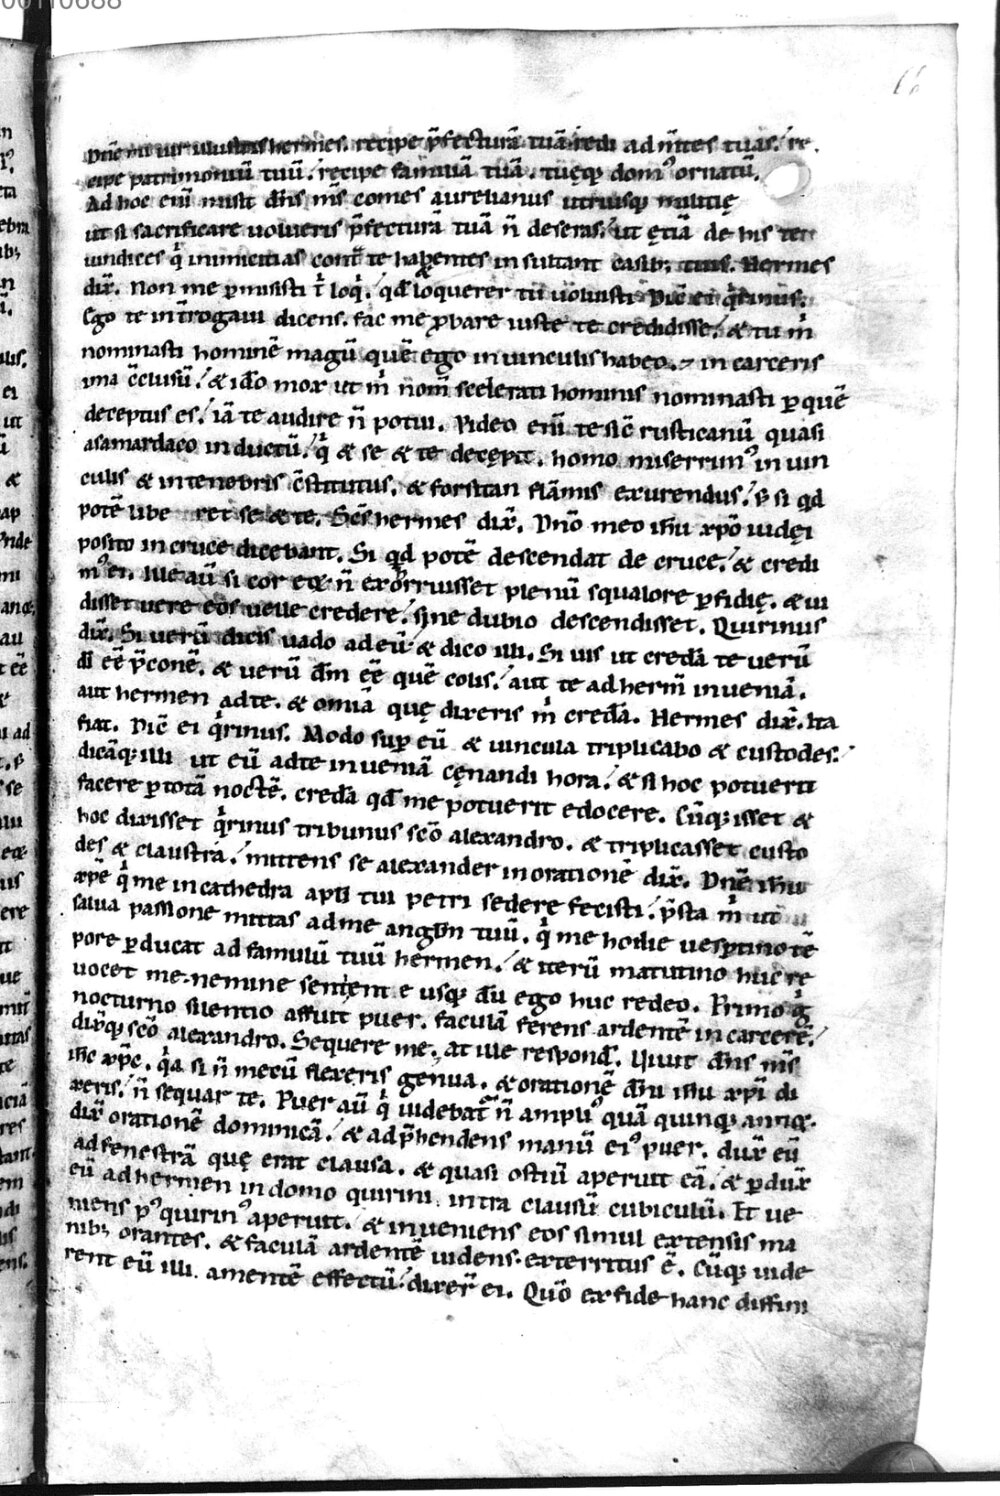 00110688
16
Dn̄e mi uir illustris hermes. recipe p̄fecturā tuā. redi ad m̄tes tuas. re
cipe patrimoniū tuū. recipe familiā tuā. tuęq; domꝰ ornatū.
Ad hoc eni᷑ misit dn̄s m̄s comes aurelianus utriusq; militię
ut si sacrificare uolueris p̄fecturā tuā n̄ deseras. ut ętiā de his
uindices qͥ inimicitias cont᷑ te habentes insultant casib; tuis. Hermes
dix̄. Non me ꝑmisisti t̄ loqͥ. qd̄ loquerer tu uoluisti. Dic̄ ei qͥrinus.
Ego te int̄rogaui dicens. fac me ꝓbare iuste te credidisse. & tu m̄
nominasti hominē magū quē ego in uinculis habeo. & in carceris
ima c̄clusū. & id̄o mox ut m̄ nom̄ scelerati hominis nominasti ꝑ quē
deceptus es. iā te audire n̄ potui. Video eni᷑ te sic̄ rusticanū quasi
asamardaco inductū. qͥ & se & te decępit. homo miserrimꝰ in uin
culis & in tenebris c̄stitutus. & forsitan flāmis exurendus. ß si qd
potē libe ret se & te. Sc̄s hermes dix̄. Dn̄o meo ih̄u xp̄o iudęi
posito in cruce dicebant. Si qd potē descendat de cruce. & credi
mꝰ ei. Ille aū si cor eoꝝ n̄ exorruisset plenū squalore ꝑfidię. & ui
disset uere eos uelle credere. sine dubio descendisset. Quirinus
dix̄. Si uerū dicis uado ad eū & dico illi. Si uis ut credā te uerū
dī eē p̄conē. & uerū dm̄ eē quē colis. aut te ad herm̄ inueniā.
aut hermen ad te. & omnia quę dixeris m̄ credā. Hermes dix̄. Ita
fiat. Dic̄ ei qͥrinus. Modo suꝑ eū & uincula triplicabo & custodes.
dicāq; illi ut eū ad te inueniā cęnandi hora. & si hoc potuerit
facere ꝑ totā noctē. credā qd̄ me potuerit edocere. Cūq; isset &
hoc dixisset qͥrinus tribunus sc̄o alexandro. & triplicasset custo
des & claustra. mittens se alexander in orationē dix̄. Dn̄e ih̄u
xp̄e qͥ me in cathedra apl̄i tui petri sedere fecisti. p̄sta m̄ ut
salua passione mittas ad me anglm̄ tuū. qͥ me hodie uespertino tē
pore ꝑducat ad famulū tuū hermen. & iterū matutino huc re
uocet me. nemine sentiente usq; dū ego huc redeo. Primo gͥ
nocturno silentio affuit puer. faculā ferens ardentē in carcerē.
dix̄q; sc̄o alexandro. Sequere me. at ille respond̄. Uiuit dn̄s m̄s
ih̄c xp̄c. qͥa si n̄ mecū flexeris genua. & orationē dn̄i ih̄u xp̄i di
xeris. n̄ sequar te. Puer aū qͥ uidebat᷑ n̄ ampliꝰ quā quinq; annoꝝ.
dix̄ orationē dominicā. & ad p̄hendens manū eiꝰ puer. dux̄ eū
ad fenestrā quę erat clausa. & quasi ostiū aperuit eā. & ꝑdux̄
eū ad hermen in domo quirini intra clausū cubiculū. Et ue
niens pꝰ quirinꝰ aperuit. & inueniens eos simul extensis ma
nib; orantes. & faculā ardentē uidens. exterritus ē. Cūq; uide
rent eū illi amentē effectū. dixer̄ ei. Quō ex fide hanc diffini